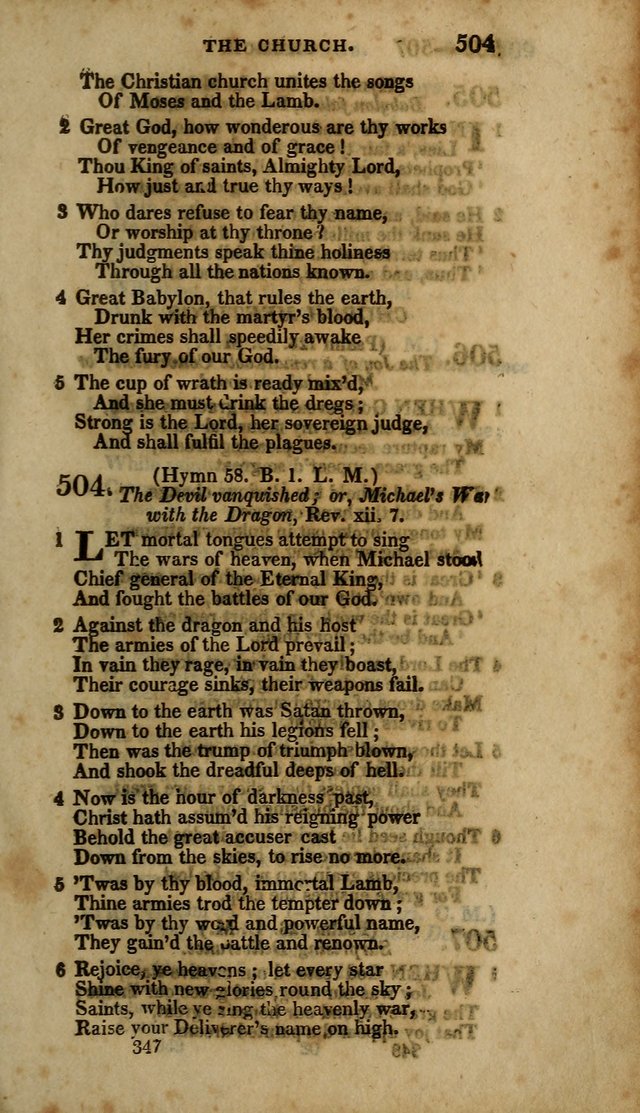 THE CHURCH. 504
The Christian church unites the songs
Of Moses and the Lamb.
2 Great God, how wonderous are thy works
Of vengeance and of grace!
Thou King of saints, Almighty Lord,
How just and true thy ways!
3 Who dares refuse to fear thy name,
Or worship at thy throne?
Thy judgments speak thine holiness
Through all the nations known.
4 Great Babylon, that rules the earth,
Drunk with the martyr's blood,
Her crimes shall speedily awake
The fury of our God.
5 The cup of wrath is ready mix'd,
And she must drink the dregs;
Strong is the Lord, her sovereign judge,
And shall fulfil the plagues.
504. (Hymn 58. B. 1. L. M.)
The Devil vanquished; or, Michael's War
with the Dragon, Rev. xii. 7.
1 LET mortal tongues attempt to sing
The wars of heaven, when Michael stood
Chief general of the Eternal King,
And fought the battles of our God.
2 Against the dragon and his host
The armies of the Lord prevail;
In vain they rage, in vain they boast,
Their courage sinks, their weapons fail.
3 Down to the earth was Satan thrown,
Down to the earth his legions fell;
Then was the trump of triumph blown,
And shook the dreadful deeps of hell.
4 Now is the hour of darkness past,
Christ hath assum'd his reigning power
Behold the great accuser cast
Down from the skies, to rise no more.
5 'Twas by thy blood, immortal Lamb,
Thine armies trod the tempter down;
'Twas by thy word and powerful name,
They gain'd the battle and renown.
6 Rejoice, ye heavens; let every star
Shine with new glories round the sky;
Saints, while ye sing the heavenly war,
Raise your Deliverer's name on high.
347